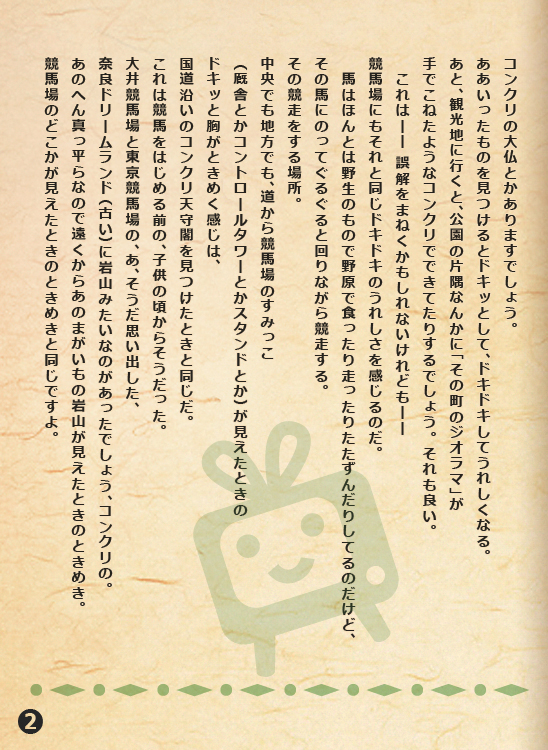 コンクリの大仏とかありますでしょう。
ああいったものを見つけるとドキッとして、ドキドキしてうれしくなる。
あと、観光地に行くと、公園の片隅なんかに「その町のジオラマ」が
手でこねたようなコンクリでできてたりするでしょう。それも良い。
これはーー 誤解をまねくかもしれないけれどもーー
競馬場にもそれと同じドキドキのうれしさを感じるのだ。
馬はほんとは野生のもので野原で食ったり走ったりたたずんだりしてるのだけど、
その馬にのってぐるぐると回りながら競走する。
その競走をする場所。
中央でも地方でも、道から競馬場のすみっこ
(厩舎とかコントロールタワーとかスタンドとか)が見えたときの
ドキッと胸がときめく感じは、
国道沿いのコンクリ天守閣を見つけたときと同じだ。
これは競馬をはじめる前の、子供の頃からそうだった。
大井競馬場と東京競馬場の、あ、そうだ思い出した、
奈良ドリームランド(古い)に岩山みたいなのがあったでしょう、コンクリの。
あのへん真っ平らなので遠くからあのまがいもの岩山が見えたときのときめき。
競馬場のどこかが見えたときのときめきと同じですよ。
2